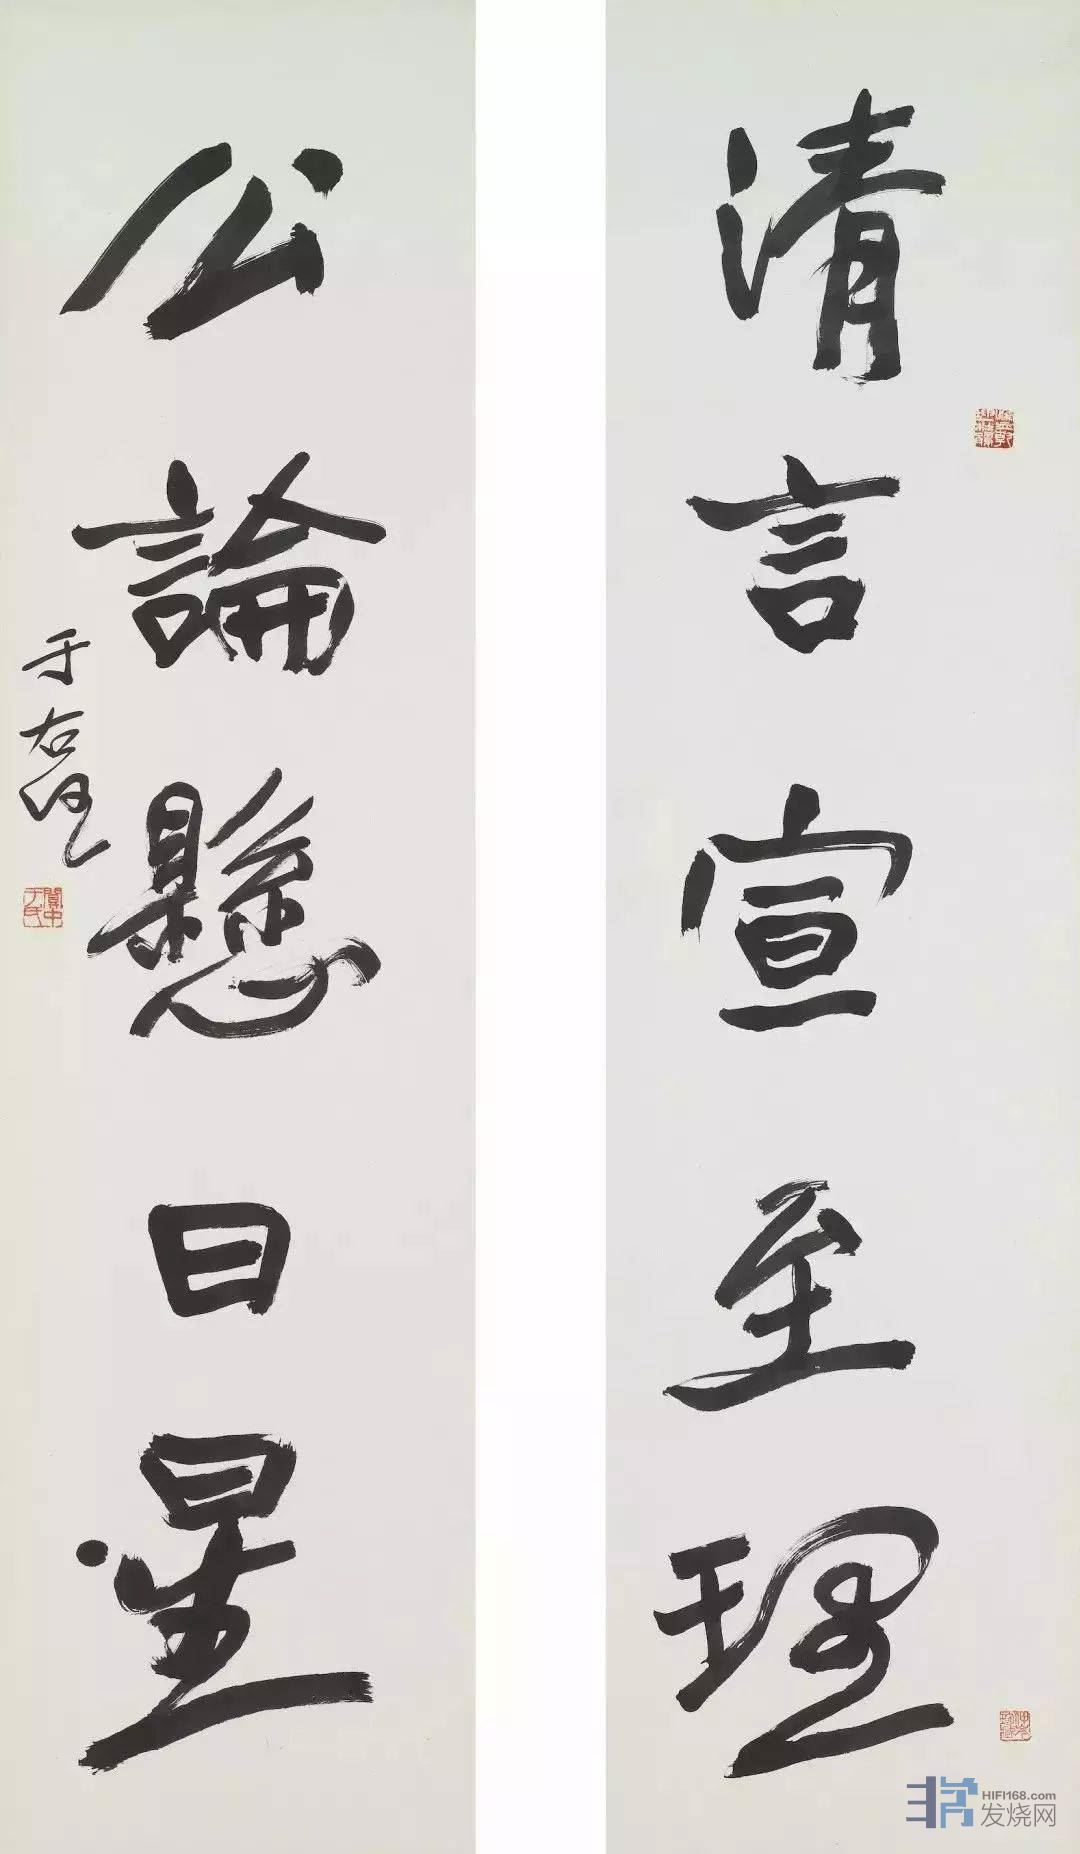 清言宣至理
公論懸日星
于右任
關中于氏
HIFI168.com
发烧网